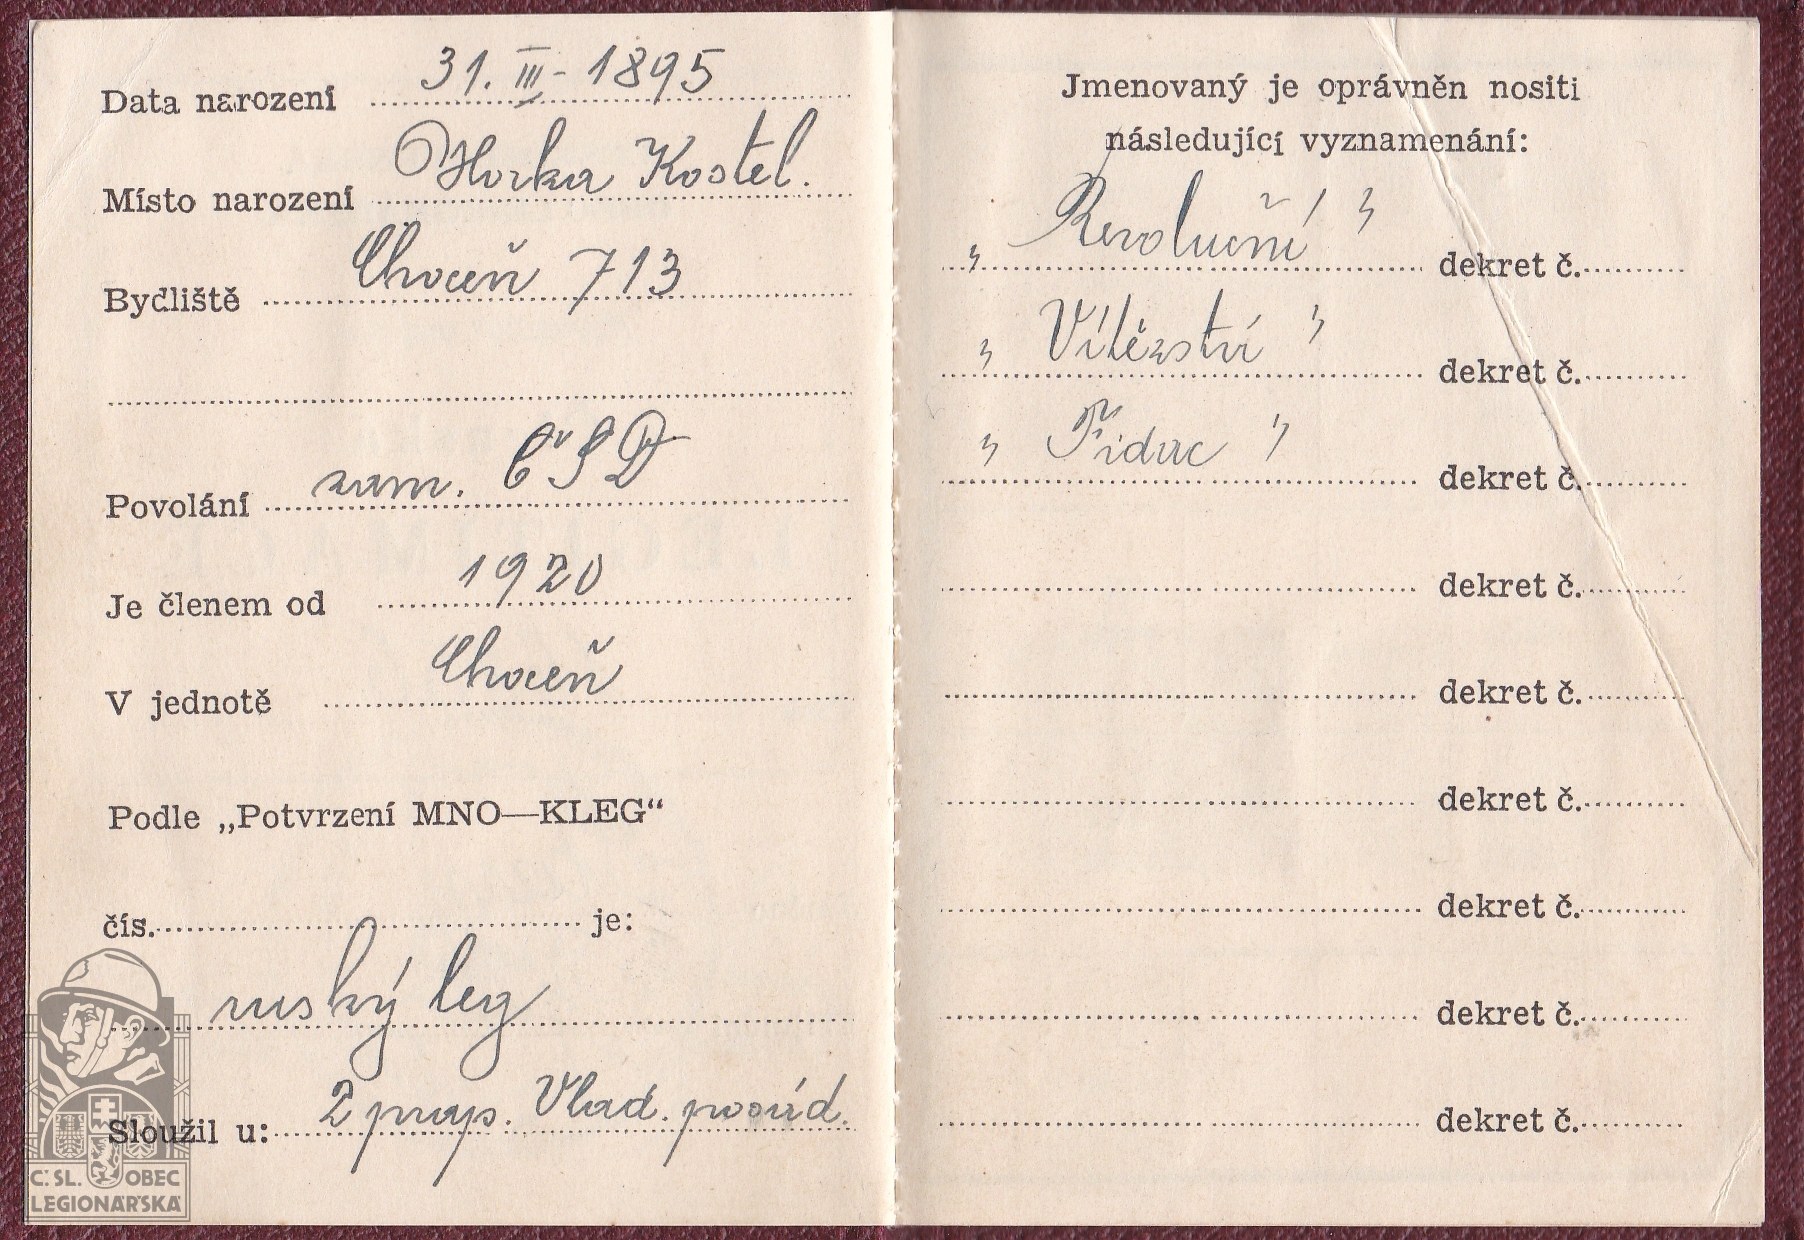 Data narození 31. III - 1895
Místo narození Horka Kostel.
Bydliště Choceň 713
Povolání zam. ČSD
Je členem od 1920
V jednotě Choceň
Podle „Potvrzení MNO—KLEG“
čís. je:
ruský leg
Sloužil u: 2 prap. Vlad. posád.
Č. SL. OBEC
LEGIONÁŘSKÁ
Jmenovaný je oprávněn nositi
následující vyznamenání:
„ Revoluční " dekret č.
„ Vítězství " dekret č.
„ Fidac " dekret č.
dekret č.
dekret č.
dekret č.
dekret č.
dekret č.
dekret č.